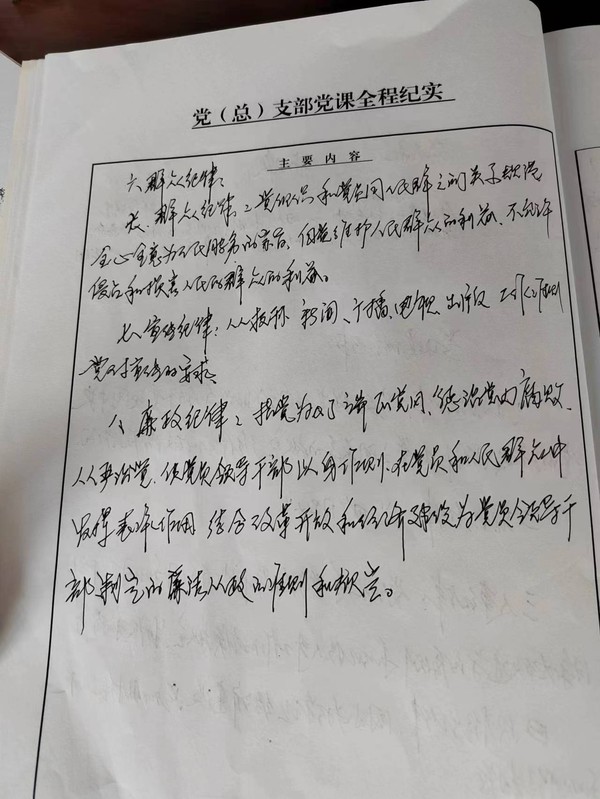 党（总）支部党课全程纪实
主 要 内 容
六 群众纪律：
群众纪律：党组织和党员同人民群众之间关系规定
全心全意为人民服务的宗旨，维护人民群众的利益、不允许
侵占和损害人民的群众的利益。
七、宣传纪律：从报刊 新闻、广播、电视、出版
党对宣传的要求、
八、廉政纪律：指党为了端正党风、惩治党内腐败、
从严治党、使党员领导干部以身作则、在党员和人民群众中
发挥表率作用 结合改革开放和经济建设为党员领导干
部制定的廉洁从政的准则和规定。